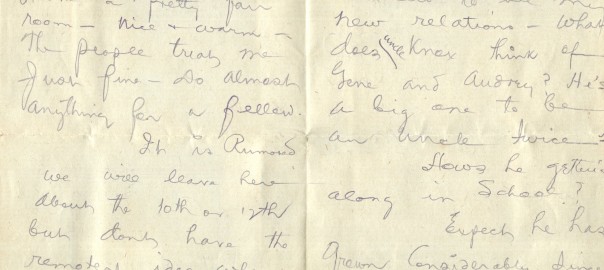 a pretty fair
room - nice & warm -
The people treat me
Just fine - do almost
anything for a fellow.
It is Rumord
we will leave here
about the 10th or 12th
but dont have the
remotest idea
new relations - What
does uncle Knox think of
Gene and Audrey? He's
a big one to be
an uncle twice -
Hows he gettin
along in School?
Expect he has
grown Considerably since